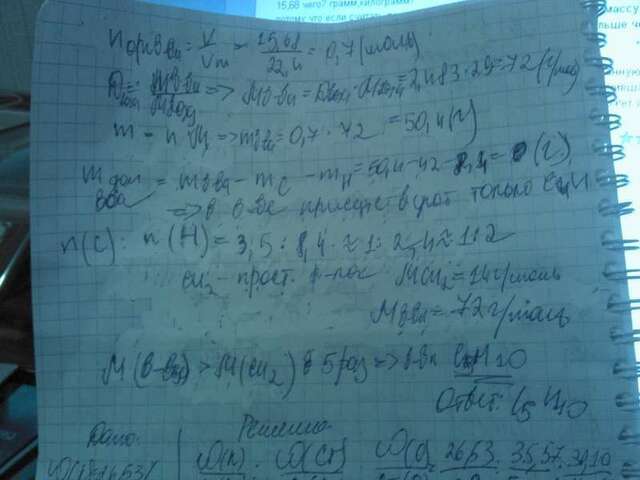 15,68 чего? грамм,килограмм?
потому что если считать
массу
n орг в-ва = V/Vm = 15,68/22,4 = 0,7 (моль)
Dвозд = Mв-ва/Mвозд => Mв-ва = Dвозд · Mвозд = 2,483·29=72 (г/моль)
m = n · M => mв-ва = 0,7 · 72 = 50,4 (г)
m доп = m в-ва − mC − mH = 50,4−42−8,4 = 0 (г)
в-ва => в в-ве присутствуют только C и H
n(C) : n(H) = 3,5 : 8,4 ≈ 1: 2,4 ≈ 1:2
CH2 - прост. ф-ла MCH2 = 14 г/моль
Mв-ва = 72 г/моль
M(в-ва) > M(CH2) в 5 раз => в-ва C5H10
Ответ: C5H10
Дано: Решение
ω(K) : ω(Cr) ω(O) 26,53 : 35,37